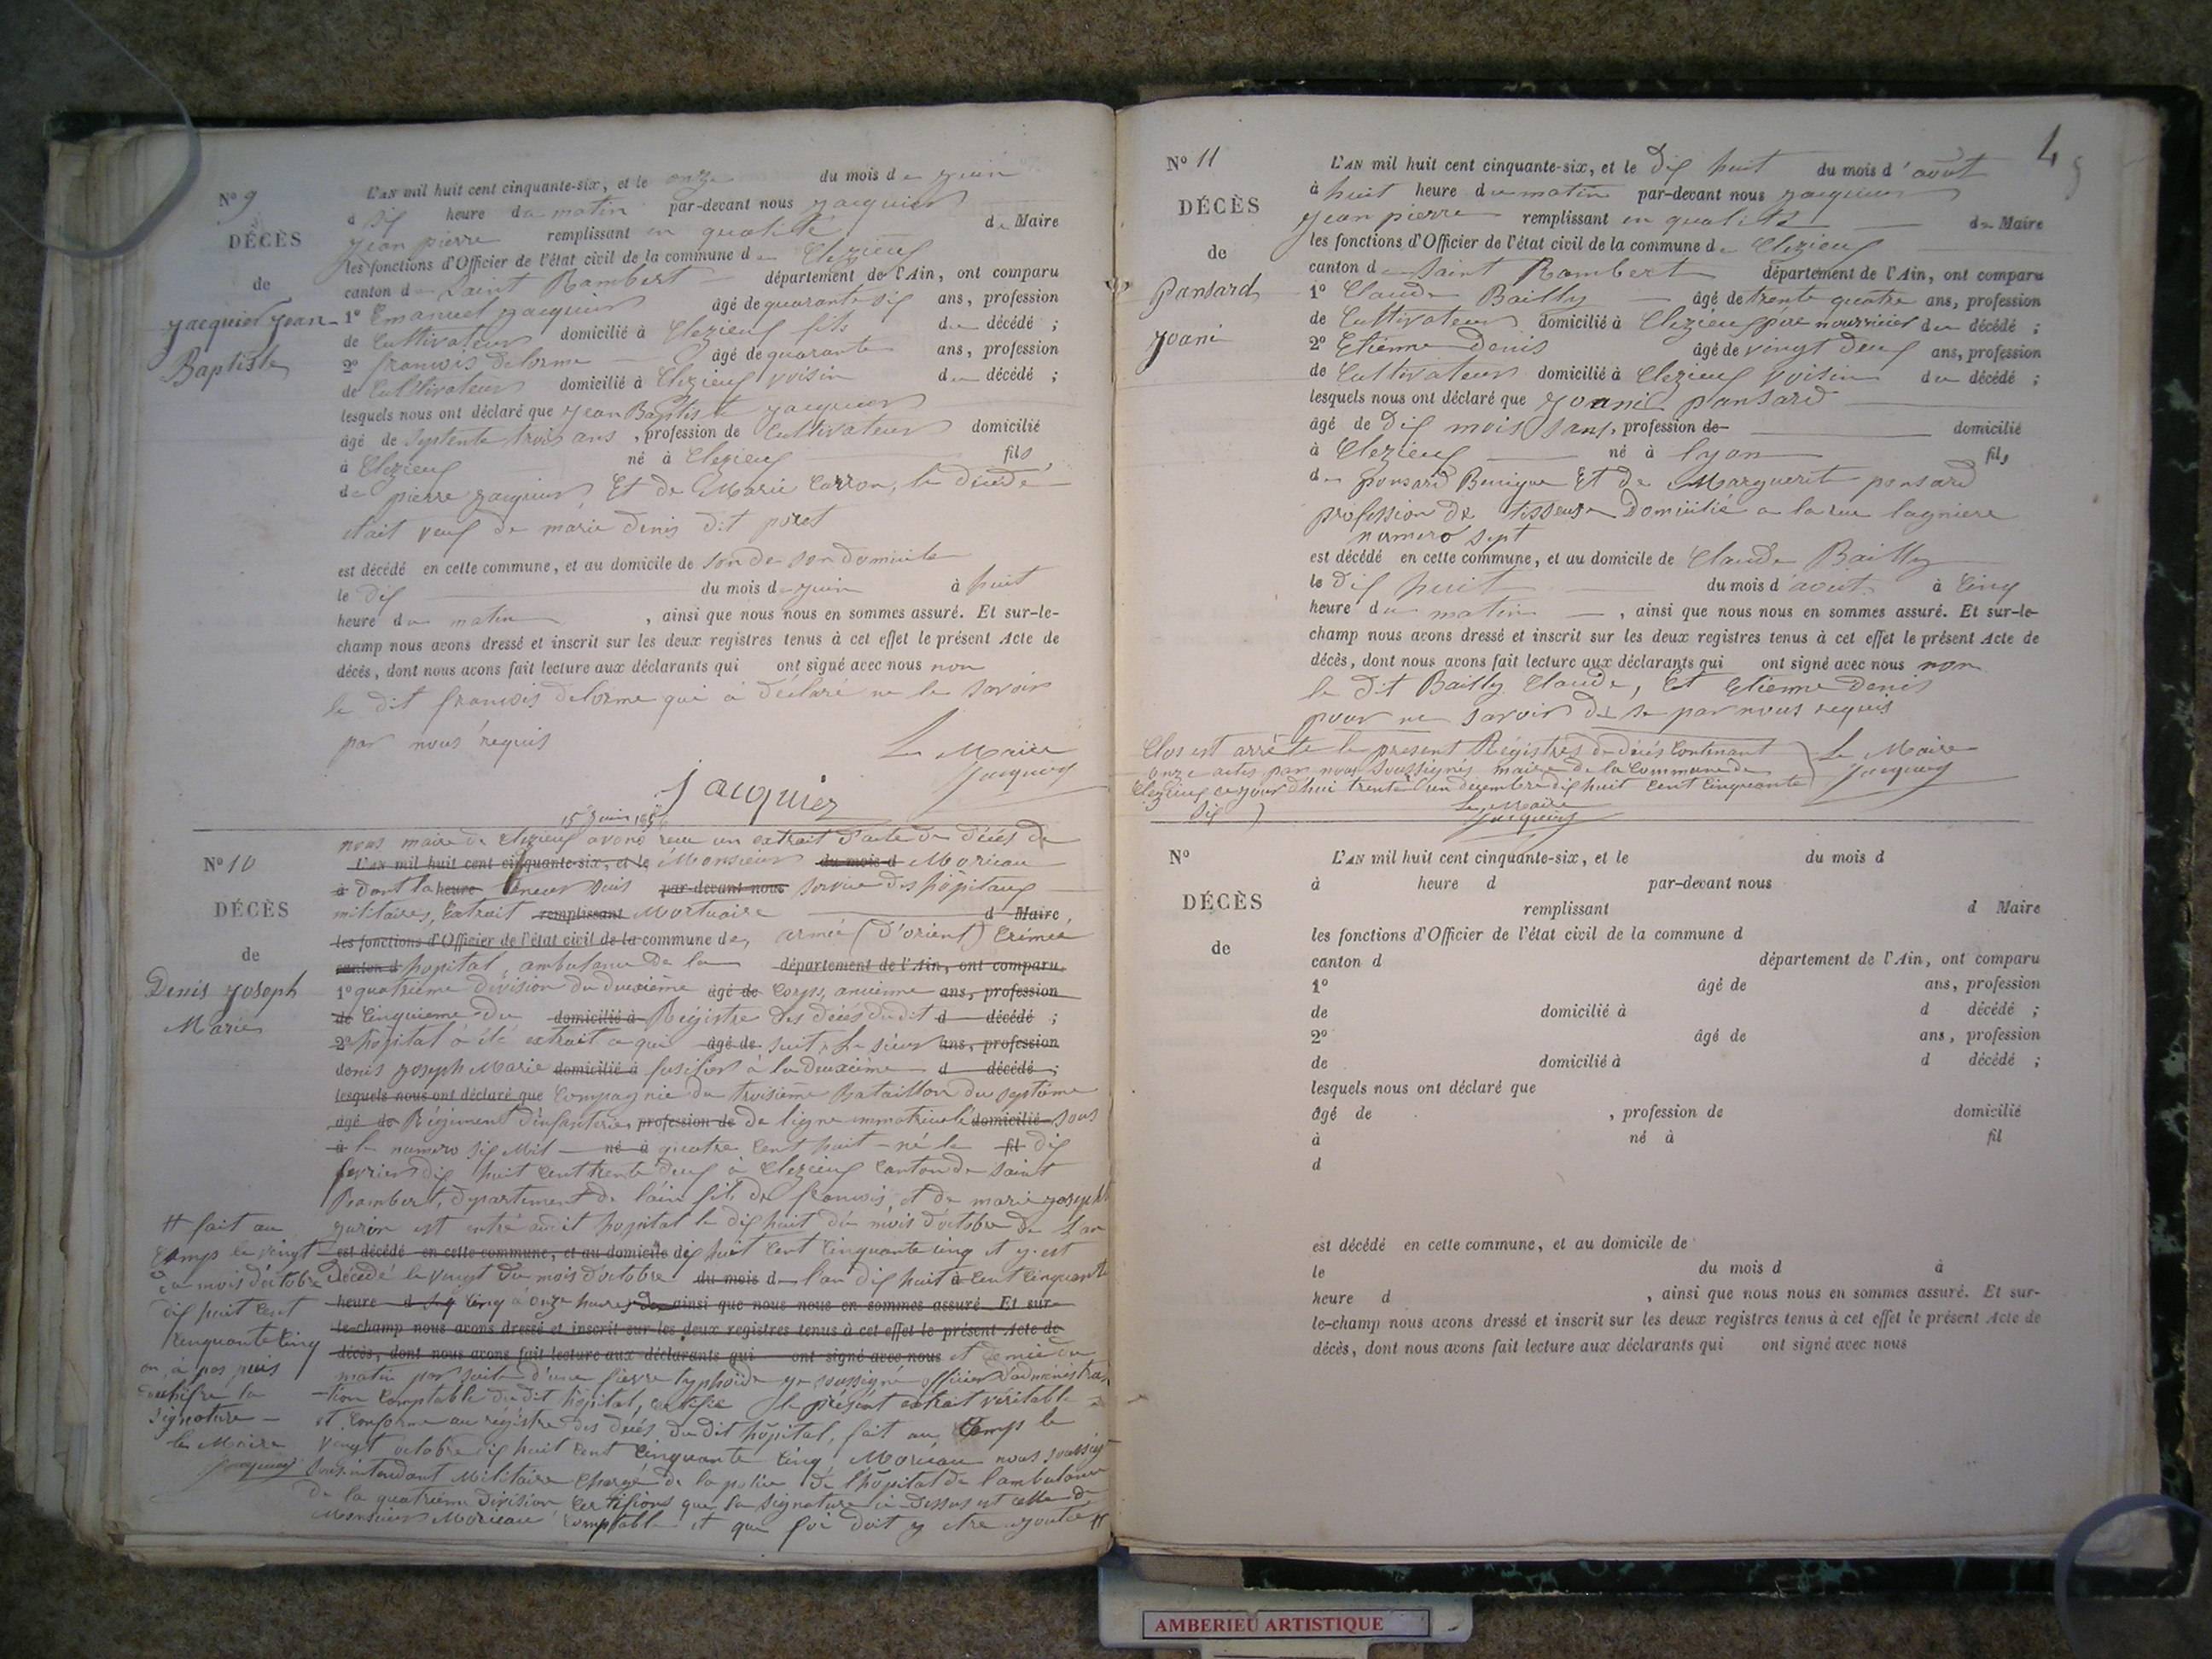 Nº 9
DÉCÈS
de
Jacquier Jean
Baptiste
L'AN mil huit cent cinquante-six, et le onze du mois de juin
à dix heure du matin par-devant nous jacquier
jean pierre remplissant en qualité de Maire
les fonctions d'Officier de l'état civil de la commune de Clezieux
canton de Saint Rambert département de l'Ain, ont comparu
1º Emanuel jacquier âgé de quarante six ans, profession
de Cultivateur domicilié à Clezieux fils du décédé ;
2º francois delorme âgé de quarante ans, profession
de Cultivateur domicilié à Clezieux voisin du décédé ;
lesquels nous ont déclaré que jean Baptiste jacquier
âgé de septente trois ans , profession de Cultivateur domicilié
à Clezieux né à Clezieux fils
de pierre jacquier Et de Marie Carron, le décédé
était veuf de marie denis dit
est décédé en cette commune, et au domicile de son domicile
le dix du mois de juin à huit
heure du matin , ainsi que nous nous en sommes assuré. Et sur-le-
champ nous avons dressé et inscrit sur les deux registres tenus à cet effet le présent Acte de
décès, dont nous avons fait lecture aux déclarants qui ont signé avec nous non
le dit francois delorme qui à déclaré ne le savoir
par nous réquis
Le Maire
jacquier Jacquier
15 juin 1856
Nº 10
DÉCÈS
de
Denis Joseph
Marie
nous maire de Clezieux avons recu un extrait d'acte de décés de
L'AN mil huit cent cinquante-six, et le Monsieur du mois d Moricau
à dont la heure teneur suit par-devant nous service des hôpitaux
militaires, Extrait remplissant Mortuaire d Maire
les fonctions d'Officier de l'état civil de la commune de, armée (d'orient) Crimée
canton d hopital, ambulance de la département de l'Ain, ont comparu
1º quatrième division du deuxième âgé de Corps, ancienne ans, profession
de Cinquieme du domicilié à Régistre des décés dudit d décédé ;
2º hôpital à été extrait ce qui âgé de suit, Le sieur ans, profession
denis joseph Marie domicilié à fusilier à la deuxième d décédé ;
lesquels nous ont déclaré que Compagnie du troisième Bataillon du septième
âgé de Régiment d'infanterie profession de De ligne immatriculé domicilié sous
à le numero six Mil né à quatre cent huit né le fil dix
fevrier dix huit cent trente deux à Clezieux Canton de saint
Rambert, département de l'ain fils de francois et de marie josephte
est entré audit hopital le dix huit du mois d'octobre de l'an
est décédé en cette commune, et au domicile dix huit cent cinquante cinq et y est
Décédé le vingt du mois d'octobre du mois de l'an dix huit à cent cinquante
heure d cinq à onze heures ainsi que nous nous en sommes assuré. Et sur-
le-champ nous avons dressé et inscrit sur les deux registres tenus à cet effet le présent Acte de
décès, dont nous avons fait lecture aux déclarants qui ont signé avec nous et demie du
matin par suite d'une fievre typhoïde je soussigné officier d'administra
tion Comptable du dit hôpital, certifie le présent extrait véritable
et Conforme au régistre des décés du dit hôpital, fait au Camp le
vingt octobre dix huit cent cinquante cinq Moricau nous soussig
Sous intendant Militaire Chargé de la police de l'hôpital de l'ambulance
de la quatrième Division Certifions que la signature ci-dessus est celle de
Monsieur Moricau Comptable et que foi doit y être ajoutée #
# fait au
Camp le vingt
du mois d'octobre
dix huit cent
cinquante cinq
on à pas puis
dechifré la
signature
le Maire
Jacquier
4
Nº 11
DÉCÈS
de
Ponsard
Joani
L'AN mil huit cent cinquante-six, et le dix huit du mois d'août
à huit heure du matin par-devant nous jacquier
jean pierre remplissant en qualité de Maire
les fonctions d'Officier de l'état civil de la commune de Clezieux
canton de Saint Rambert département de l'Ain, ont comparu
1º Claude Bailly âgé de trente quatre ans, profession
de Cultivateur domicilié à Clezieux père nourricier du décédé ;
2º Etienne Denis âgé de vingt deux ans, profession
de Cultivateur domicilié à Clezieux voisin du décédé ;
lesquels nous ont déclaré que Joani ponsard
âgé de Dix mois sans, profession de domicilié
à Clezieux né à lyon fils
de ponsard Benigne Et de Marguerite ponsard
profession de tisseur Domicilié a la rue lagniere
numero sept
est décédé en cette commune, et au domicile de Claude Bailly
le dix huit du mois d'aout à Cinq
heure du matin , ainsi que nous nous en sommes assuré. Et sur-le-
champ nous avons dressé et inscrit sur les deux registres tenus à cet effet le présent Acte de
décès, dont nous avons fait lecture aux déclarants qui ont signé avec nous non
le dit Bailly Claude, Et Etienne Denis
pour ne savoir de se par nous requis
Clos est arrêté le present Régistres de décés Contenant
onze actes par nous soussignés maire de la Commune de
Clezieux ce jour d'hui trente un decembre dix huit cent cinquante
six
Le Maire
Jacquier
Le Maire
Jacquier
Nº
DÉCÈS
de
L'AN mil huit cent cinquante-six, et le du mois d
à heure d par-devant nous
remplissant d Maire
les fonctions d'Officier de l'état civil de la commune d
canton d département de l'Ain, ont comparu
1º âgé de ans, profession
de domicilié à d décédé ;
2º âgé de ans, profession
de domicilié à d décédé ;
lesquels nous ont déclaré que
âgé de , profession de domicilié
à né à fil
d
est décédé en cette commune, et au domicile de
le du mois d à
heure d , ainsi que nous nous en sommes assuré. Et sur-
le-champ nous avons dressé et inscrit sur les deux registres tenus à cet effet le présent Acte de
décès, dont nous avons fait lecture aux déclarants qui ont signé avec nous
AMBERIEU ARTISTIQUE